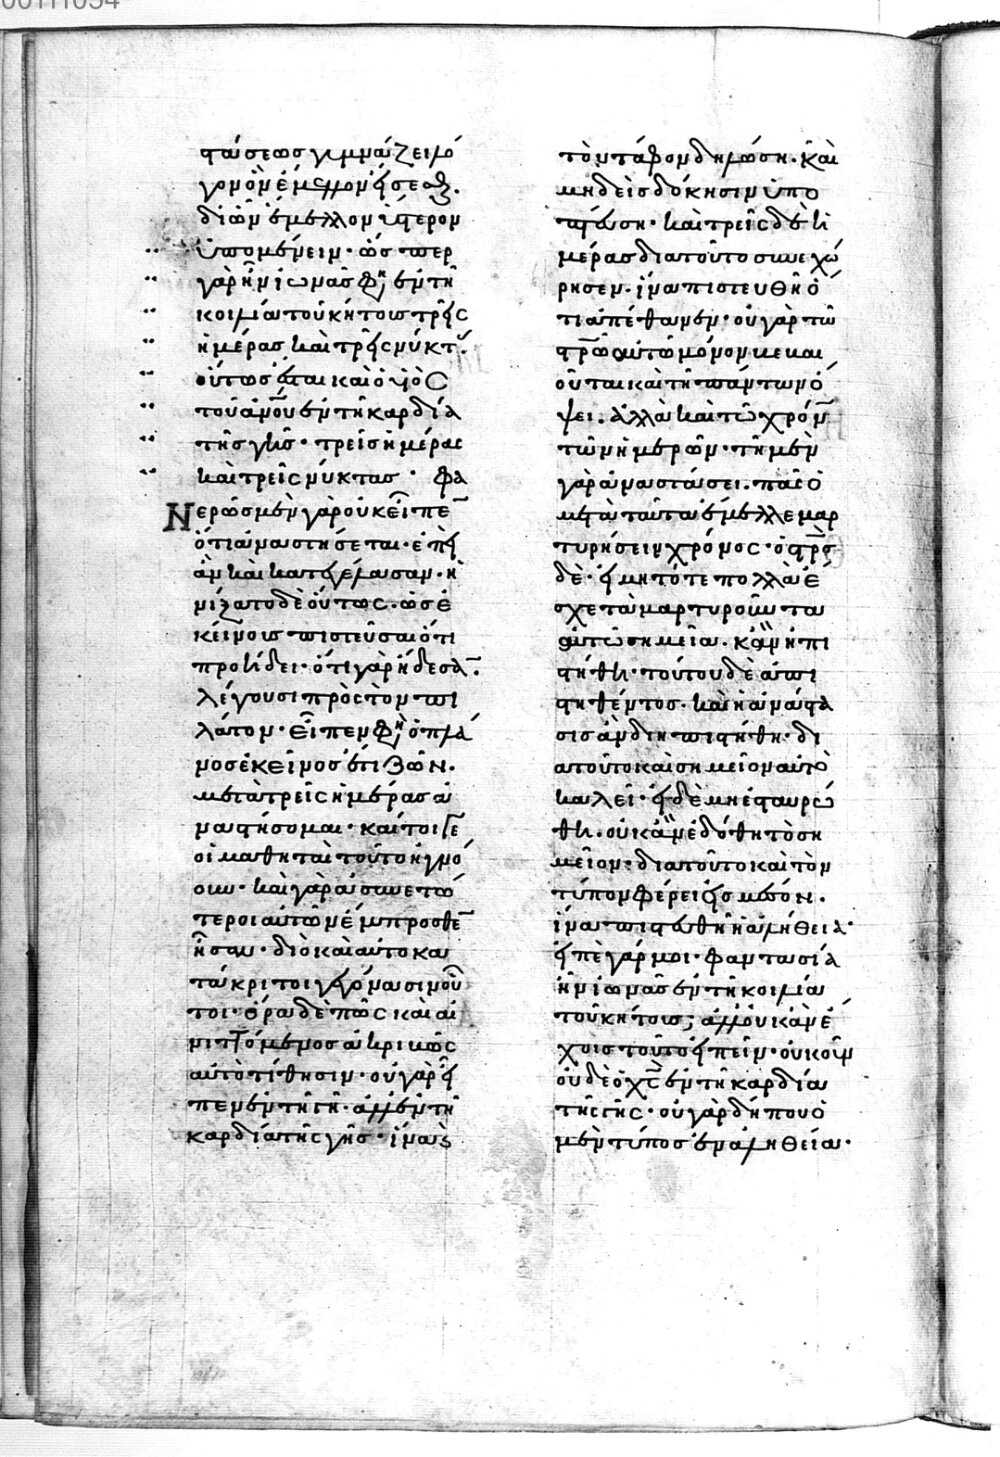 στάσεως γυμνάζει λό
γον ὃν ἔμελλον εἴσεσθαι
δι' ὧν ἔμελλον ὕστερον
ὑπομένειν· ὥσπερ
γὰρ ἦν ἰωνᾶς φη(σὶν) ἐν τῆ
κοιλία τοῦ κήτους τρεῖς
ἡμέρας καὶ τρεῖς νύκτ(ας)
οὕτως ἔσται καὶ ὁ υἱὸς
τοῦ ἀνου ἐν τῆ καρδία
τῆς γῆς· τρεῖς ἡμέρας
καὶ τρεῖς νύκτας· φα
νερῶς μὲν γὰρ οὐκ εἶπε
ὅτι ἀναστήσεται· ἐπεὶ
ἂν καὶ κατεγέλασαν· ἠ
νίξατο δὲ οὕτως· ὡς ἐ
κείνους πιστεῦσαι ὅτι
προήδει· ὅτι γὰρ ἤδεσα(ν)·
λέγουσι πρὸς τὸν πι
λάτον· εἶπεν φη(σὶν) ὁ πλά
νος ἐκεῖνος ἔτι ζῶν·
μετὰ τρεῖς ἡμέρας ἀ
ναστήσομαι· καίτοι γε
οἱ μαθηταὶ τοῦτο ἠγνό
ουν· καὶ γὰρ ἀσυνετώ
τεροι αὐτῶν ἔμπροσθε
ἦσαν· διὸ καὶ αὐτοκα
τάκριτοι γεγόνασιν οὗ
τοι· ὅρα δὲ πῶς καὶ αἰ
νιττόμενος ἀκριβῶς
αὐτὸ τίθησιν· οὐ γὰρ εἶ
πεν ἐν τῆ γῆ· ἀλλ' ἐν τῆ
καρδία τῆς γῆς· ἵνα καὶ
τὸν τάφον δηλώση· καὶ
μηδεὶς δόκησιν ὑπο
πτεύση· καὶ τρεῖς δὲ ἡ
μέρας διὰ τοῦτο συνεχώ
ρησεν· ἵνα πιστευθῆ ὅ
τι ἀπέθανεν· οὐ γὰρ τῶ
στρῶ αὐτῶ μόνον βεβαι
οῦται καὶ τῆ πάντων ὄ
ψει· ἀλλὰ καὶ τῶ χρόνω
τῶν ἡμερῶν· τῆ μὲν
γὰρ ἀναστάσει· πᾶς ὁ
μετὰ ταῦτα ἔμελλε μαρ
τυρήσειν χρόνος· ὁ στρὸς
δὲ· εἰ μὴ τότε πολλὰ ἔ
σχε τὰ μαρτυροῦντα
αὐτῶ σημεῖα· κἂν ἠπι
στήθη· τούτου δὲ ἀπι
στηθέντος· καὶ ἡ ἀνάστα
σις ἂν διηπιστήθη· δι
ὰ τοῦτο καὶ σημεῖον αὐτὸ
καλεῖ· εἰ δὲ μὴ ἐσταυρώ
θη· οὐκ ἂν ἐδόθη τὸ ση
μεῖον· διὰ τοῦτο καὶ τὸν
τύπον φέρει εἰς μέσον·
ἵνα πιστωθῆ ἡ ἀλήθεια·
εἰπὲ γάρ μοι· φαντασία
ἦν ἰωνᾶς ἐν τῆ κοιλία
τοῦ κήτους; ἀλλ' οὐκ ἂν ἔ
χοις τοῦτο εἰπεῖν· οὐκοῦν
οὐδὲ ὁ χς ἐν τῆ καρδία
τῆς γῆς· οὐ γὰρ δήπου ὁ
μὲν τύπος ἐν ἀληθεία·